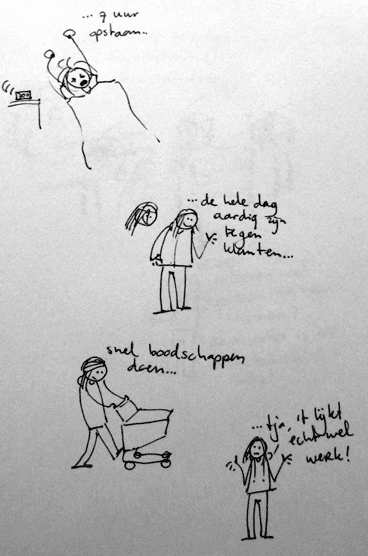 ... 7 uur
opstaan..
... de hele dag
aardig zijn
tegen
klanten...
snel boodschappen
doen...
... tja, 't lijkt
echt wel
werk!